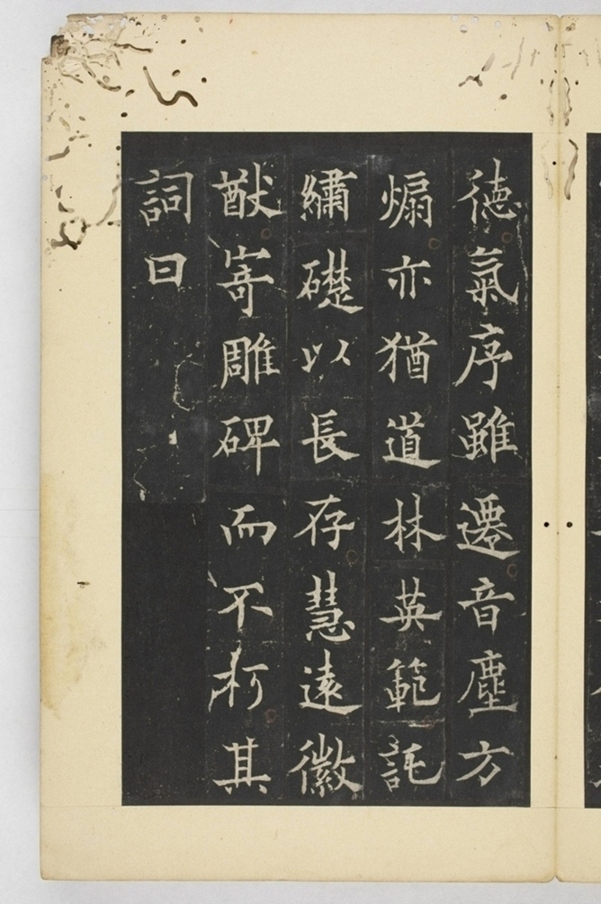 德氣序雖遷音塵方
煽亦猶道林英範託
繡礎以長存慧遠徽
猷寄雕碑而不朽其
詞曰